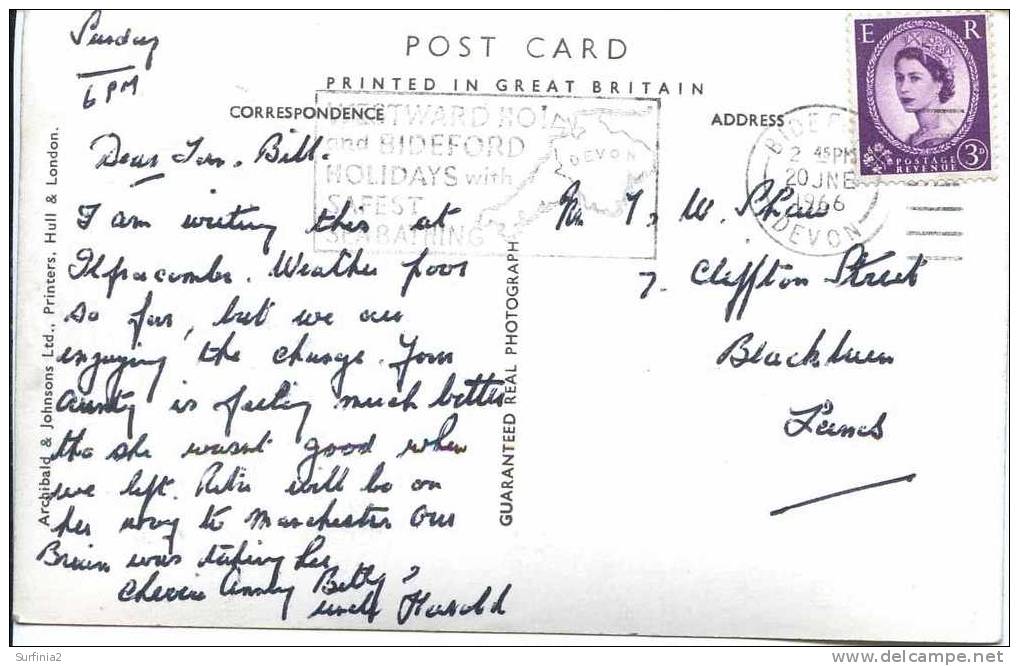 Sunday
6 PM
POST CARD
PRINTED IN GREAT BRITAIN
CORRESPONDENCE
ADDRESS
WESTWARD HO!
and BIDEFORD
HOLIDAYS with
SAFEST
SEA BATHING
DEVON
E R
POSTAGE
REVENUE
3D
2 45PM
20 JNE
1966
DEVON
Dear Bill.
I am writing this at
Ilfracombe. Weather poor
so far, but we are
enjoying the change. Your
Aunty is feeling much better
tho she wasnt good when
we left. will be on
her way to Manchester Our
Brian was taking her
Aunty Betty,
uncle Harold
W. Shaw
7. Cleffton Street
Blackburn
Lancs
Archibald & Johnsons Ltd., Printers, Hull & London.
GUARANTEED REAL PHOTOGRAPH
Surfinia2
delcampe.net